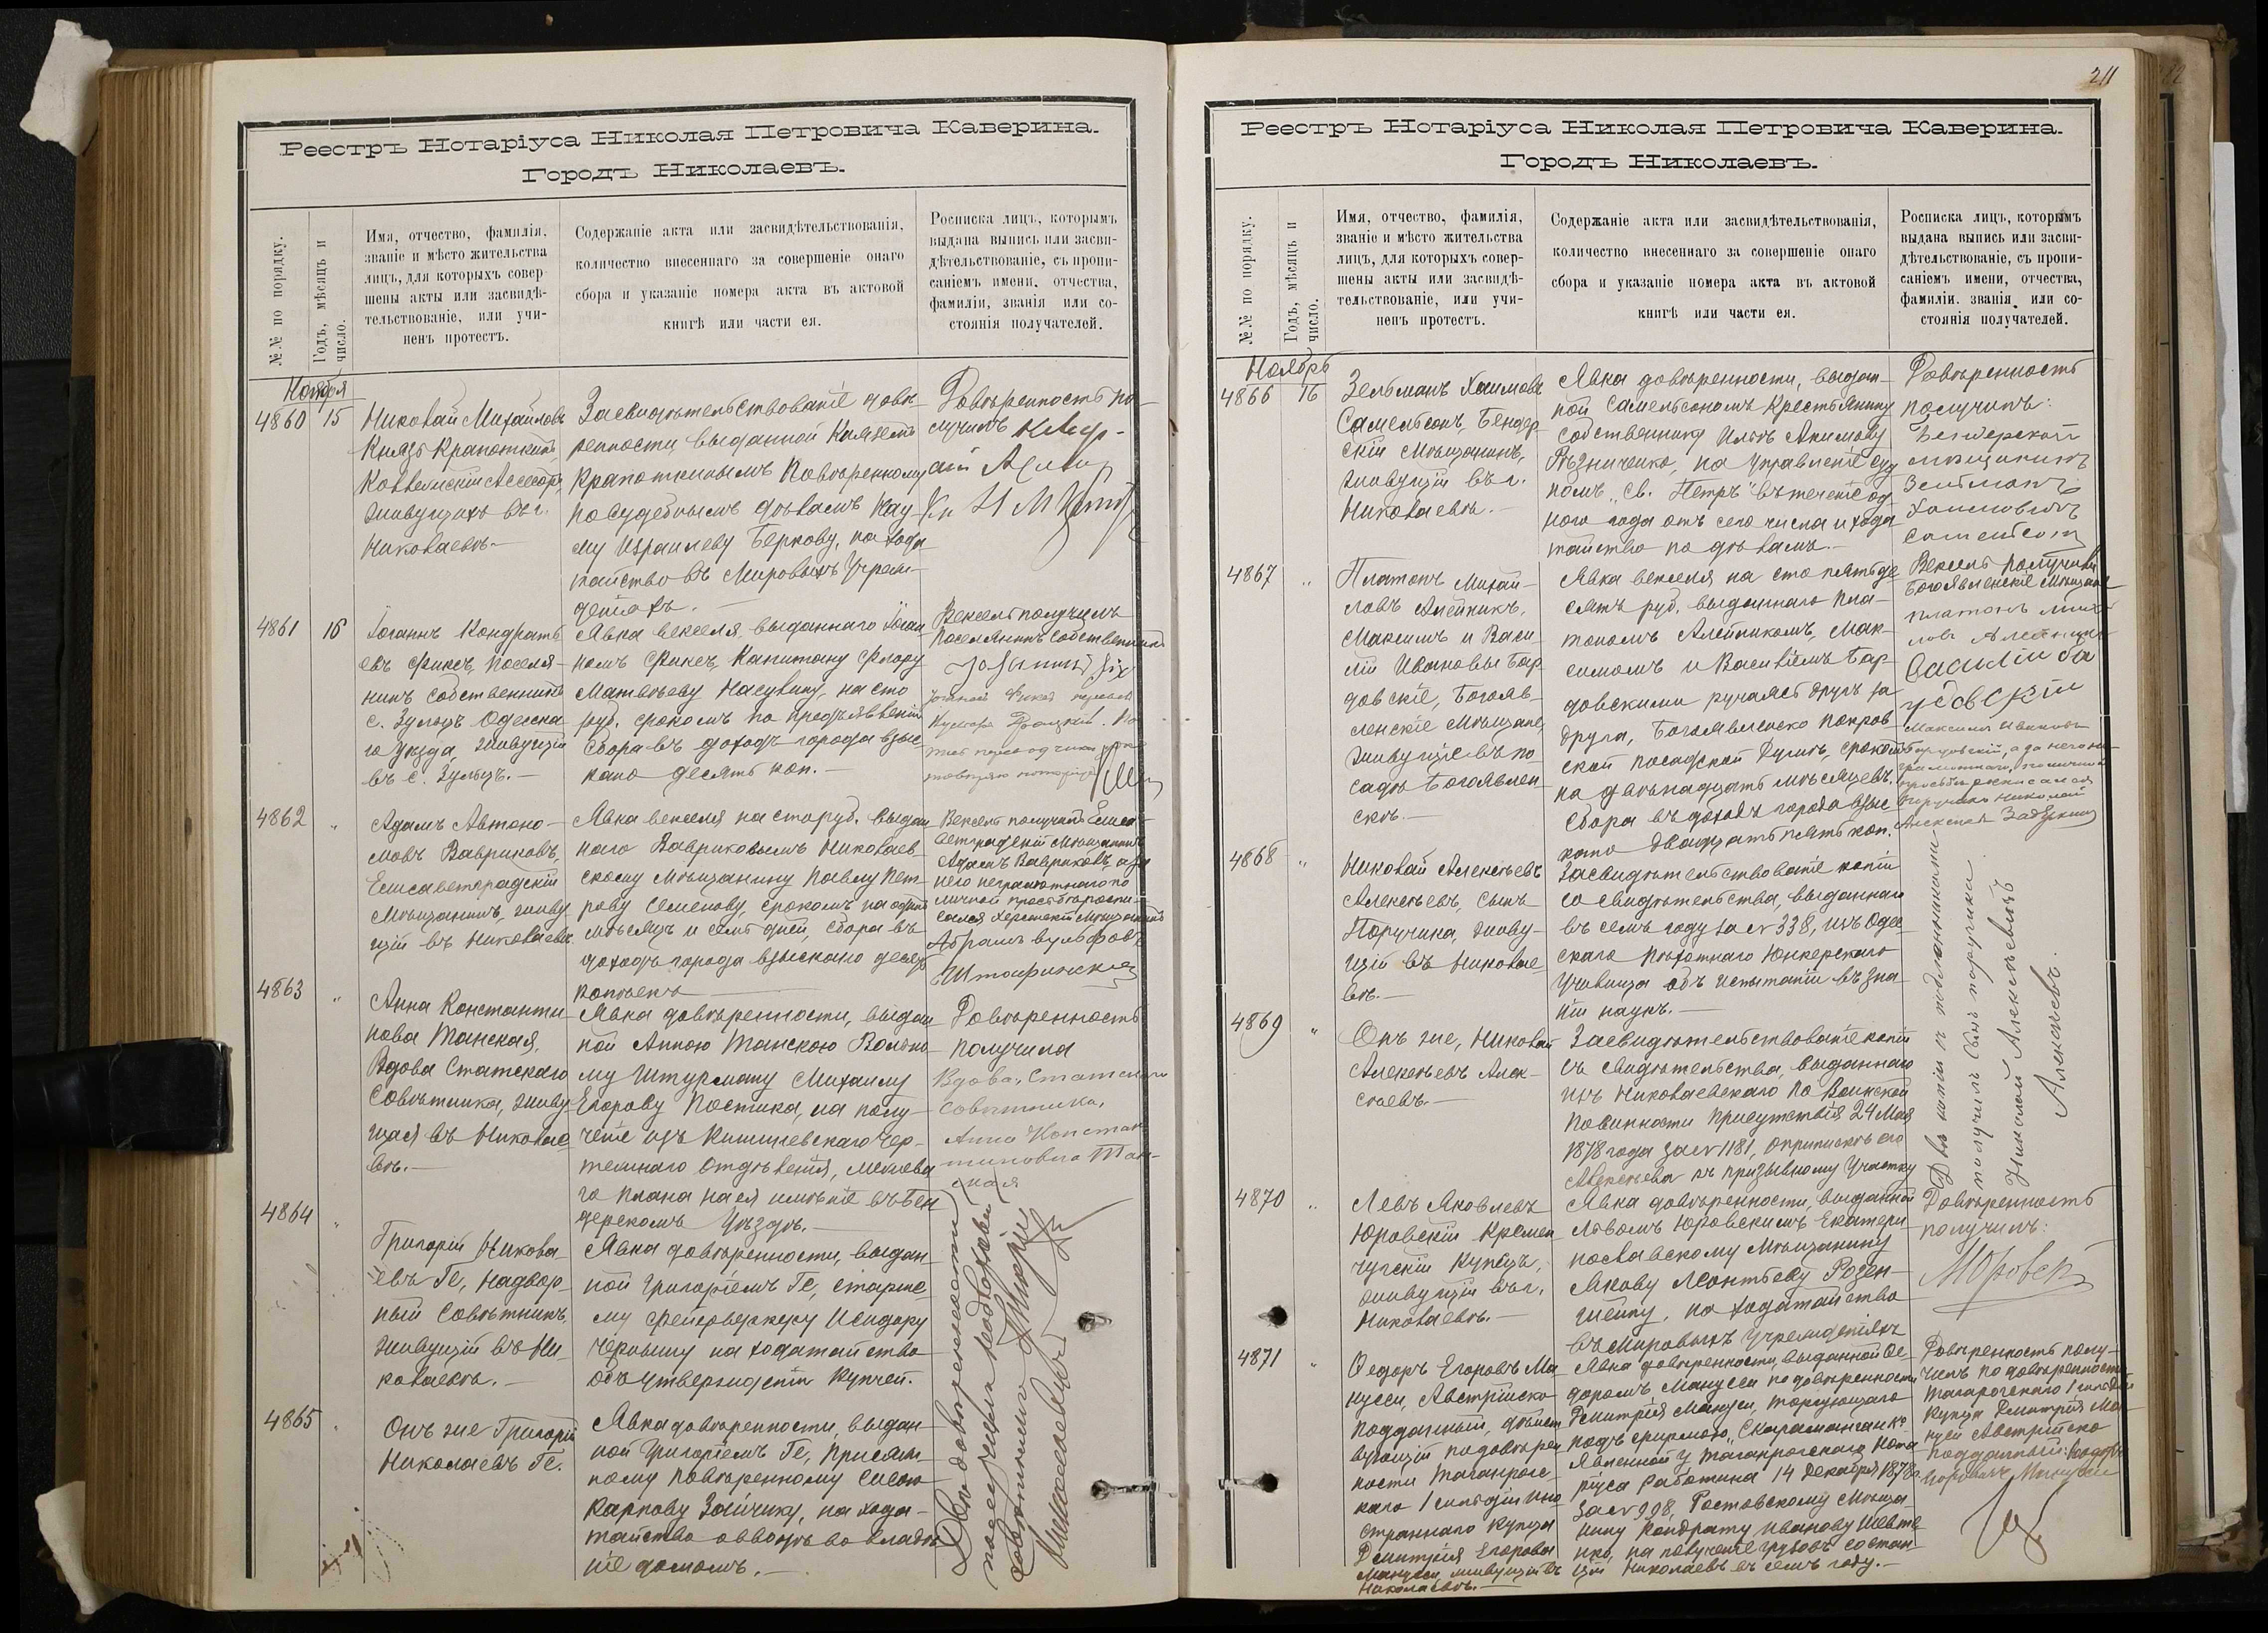 Реестръ Нотаріуса Николая Петровича Каверина.
Городъ Николаевъ.
№№ по порядку.
Годъ, мѣсяцъ и число.
Имя, отчество, фамилія,
званіе и мѣсто жительства
лицъ, для которыхъ совер-
шены акты или засвидѣ-
тельствованіе, или учи-
ненъ протестъ.
Содержаніе акта или засвидѣтельствованія,
количество внесеннаго за совершеніе онаго
сбора и указаніе номера акта въ актовой
книгѣ или части ея.
Росписка лицъ, которымъ
выдана выпись или засви-
дѣтельствованіе, съ пропи-
саніемъ имени, отчества,
фамиліи, званія или со-
стоянія получателей.
Ноября
4860
15
Николай Михайловъ
Князь Крапоткинъ,
Коллежскій Ассесоръ,
живущихъ въ г.
Николаевѣ.—
Засвидѣтельствованіе довѣ-
ренности, выданной Княземъ
Крапоткинымъ Повѣренному
по судебнымъ дѣламъ Кау-
му Израилеву Беркову, на хода
тайство въ Мировыхъ Учреж-
деніяхъ.—
Довѣренность по-
лучилъ
4861
16
Іоганнъ Кондрать
евъ Фиксъ, поселя-
нинъ собственникъ
с. Зульцъ Одесска
го уѣзда, живущій
въ с. Зульцъ.—
Явка векселя, выданнаго Іоган
номъ Фиксъ, Капитану Флору
Матвѣеву Насувину, на сто
руб. срокомъ по предъявленіи
Сбора въ доходъ города взыс
кано десять коп.—
Вексель получилъ
поселянинъ собственникъ
4862
"
Адамъ Автоно-
мовъ Вавриковъ,
Елисаветградскій
Мѣщанинъ, живу
щій въ Николаевѣ
Явка векселя на сто руб. выдан
наго Вавриковымъ Николаев-
скому мѣщанину Павлу Пет-
рову Семенову, срокомъ на одинъ
мѣсяцъ и семь дней, сбора въ
доходъ города взыскано десять
копѣекъ
Вексель получилъ Елиса-
ветградскій мѣщанинъ
Адамъ Вавриковъ, а за
него неграмотнаго по
личной просьбѣ роспи-
сался Херсонскій мѣщанинъ
Абрамъ Вульфовъ
4863
"
Анна Константи
нова Танская,
Вдова Статскаго
Совѣтника, живу
щая въ Николае
вѣ.—
Явка довѣренности, выдан
ной Анною Танскою Вольно-
му Штурману Михаилу
Егорову Постика, на полу-
ченіе изъ Кишиневскаго Чер-
тежнаго Отдѣленія, межева
го плана на ея имѣніе въ Бен
дерскомъ Уѣздѣ.—
Довѣренность
получила
Вдова, Статскаго
Совѣтника,
Анна Констан
тиновна Тан-
ская
4864
"
Григорій Никола-
евъ Ге, Надвор-
ный Совѣтникъ,
живущій въ Ни-
колаевѣ.—
Явка довѣренности, выдан-
ной Григоріемъ Ге, старше
му Фейерверкеру Исидору
Чернышу на ходатайство
объ утвержденіи купчей.
4865
"
Онъ же Григорій
Николаевъ Ге.
Явка довѣренности, выдан-
ной Григоріемъ Ге, Присяж-
ному Повѣренному Сисою
Карпову Зайчику, на хода-
тайство о вводѣ во владѣ
ніе домомъ.—
Двѣ довѣренности
получилъ Надворный
Совѣтникъ Григорій
Николаевичъ Ге
211
Реестръ Нотаріуса Николая Петровича Каверина.
Городъ Николаевъ.
№№ по порядку.
Годъ, мѣсяцъ и число.
Имя, отчество, фамилія,
званіе и мѣсто жительства
лицъ, для которыхъ совер-
шены акты или засвидѣ-
тельствованіе, или учи-
ненъ протестъ.
Содержаніе акта или засвидѣтельствованія,
количество внесеннаго за совершеніе онаго
сбора и указаніе номера акта въ актовой
книгѣ или части ея.
Росписка лицъ, которымъ
выдана выпись или засви-
дѣтельствованіе, съ пропи-
саніемъ имени, отчества,
фамиліи, званія, или со-
стоянія получателей.
Ноябрь
4866
16
Зельманъ Хаимовъ
Самельсонъ, Бендер
скій Мѣщанинъ,
живущій въ г.
Николаевѣ.—
Явка довѣренности, выдан-
ной Самельсономъ Крестьянину
собственнику Ильѣ Акимову
Рѣзниченко, на управленіе суд
номъ „Св. Петръ" въ теченіе од
ного года отъ сего числа и хода
тайство по дѣламъ.—
Довѣренность
получилъ:
Бендерскій
мѣщанинъ
Зельманъ
Хаимовичъ
Самельсонъ
4867
"
Платонъ Михай-
ловъ Алейникъ,
Максимъ и Васи-
лій Ивановы Бар
довскіе, Богояв-
ленскіе Мѣщане,
живущіе въ по
садѣ Богоявлен
скѣ.—
Явка векселя на сто пятьде
сятъ руб. выданнаго Пла-
тономъ Алейникомъ, Мак-
симомъ и Василіемъ Бар-
довскими ручаясь другъ за
друга, Богоявленско Покров
ской посадской Думѣ, срокомъ
на двѣнадцать мѣсяцевъ.
Сбора въ доходъ города взыс
кано двадцать пять коп.
Вексель получили
Богоявленскіе Мѣщане
платонъ миха
ловъ Алейник
Василій Ба
рдовскій
Максимъ Ивановъ
Бардовскій, а за него не-
грамотнаго, по личной
просьбѣ росписался
Поручикъ Николай
4868
"
Николай Алексѣевъ
Алексѣевъ, Сынъ
Поручика, живу-
щій въ Николае-
вѣ.—
Засвидѣтельствованіе копіи
со свидѣтельства, выданнаго
въ семъ году за № 338, изъ Одес
скаго Пѣхотнаго Юнкерскаго
Училища объ испытаніи въ зна
ніи наукъ.—
4869
"
Онъ же, Николай
Алексѣевъ Алек-
сѣевъ.—
Засвидѣтельствованіе копіи
съ свидѣтельства, выданнаго
изъ Николаевскаго по Воинской
Повинности Присутствія 24 Мая
1878 года за № 1181, о припискѣ его
Алексѣева къ призывному участку
Двѣ копіи съ подлинниками
получилъ сынъ поручика
Николай Алексѣевичъ
Алексѣевъ.
4870
"
Левъ Яковлевъ
Юровскій Кремен
чугскій Купецъ,
живущій въ г.
Николаевѣ.—
Явка довѣренности, выданной
Львомъ Юровскимъ Екатери
нославскому Мѣщанину
Якову Леонтьеву Розен-
шейну, на ходатайство
въ Мировыхъ Учрежденіяхъ
Довѣренность
получилъ:
4871
"
Ѳедоръ Егоровъ Ма
нусси, Австрійско-
подданный, дѣйст
вующій по довѣрен
ности Таганрогс-
каго 1 гильдіи Ино
страннаго купца
Дмитрія Егорова
Манусси, живущій въ
Николаевѣ.—
Явка довѣренности, выданной Ѳе-
доромъ Манусси по довѣренности
Дмитрія Манусси, торгующаго
подъ фирмою „Скараманганъ"
явленной у Таганрогскаго Нота
ріуса Работина 14 Декабря 1878 г.
за № 998, Ростовскому Мѣща
нину Кондрату Иванову Шевче
нко, на полученіе грузовъ со стан-
ціи Николаевъ въ семъ году.—
Довѣренность полу-
чилъ по довѣренности
Таганрогскаго 1 гильдіи
Купца Дмитрія Ма-
нуси Австрійско
подданный: Ѳедоръ
Егоровичъ Манусси